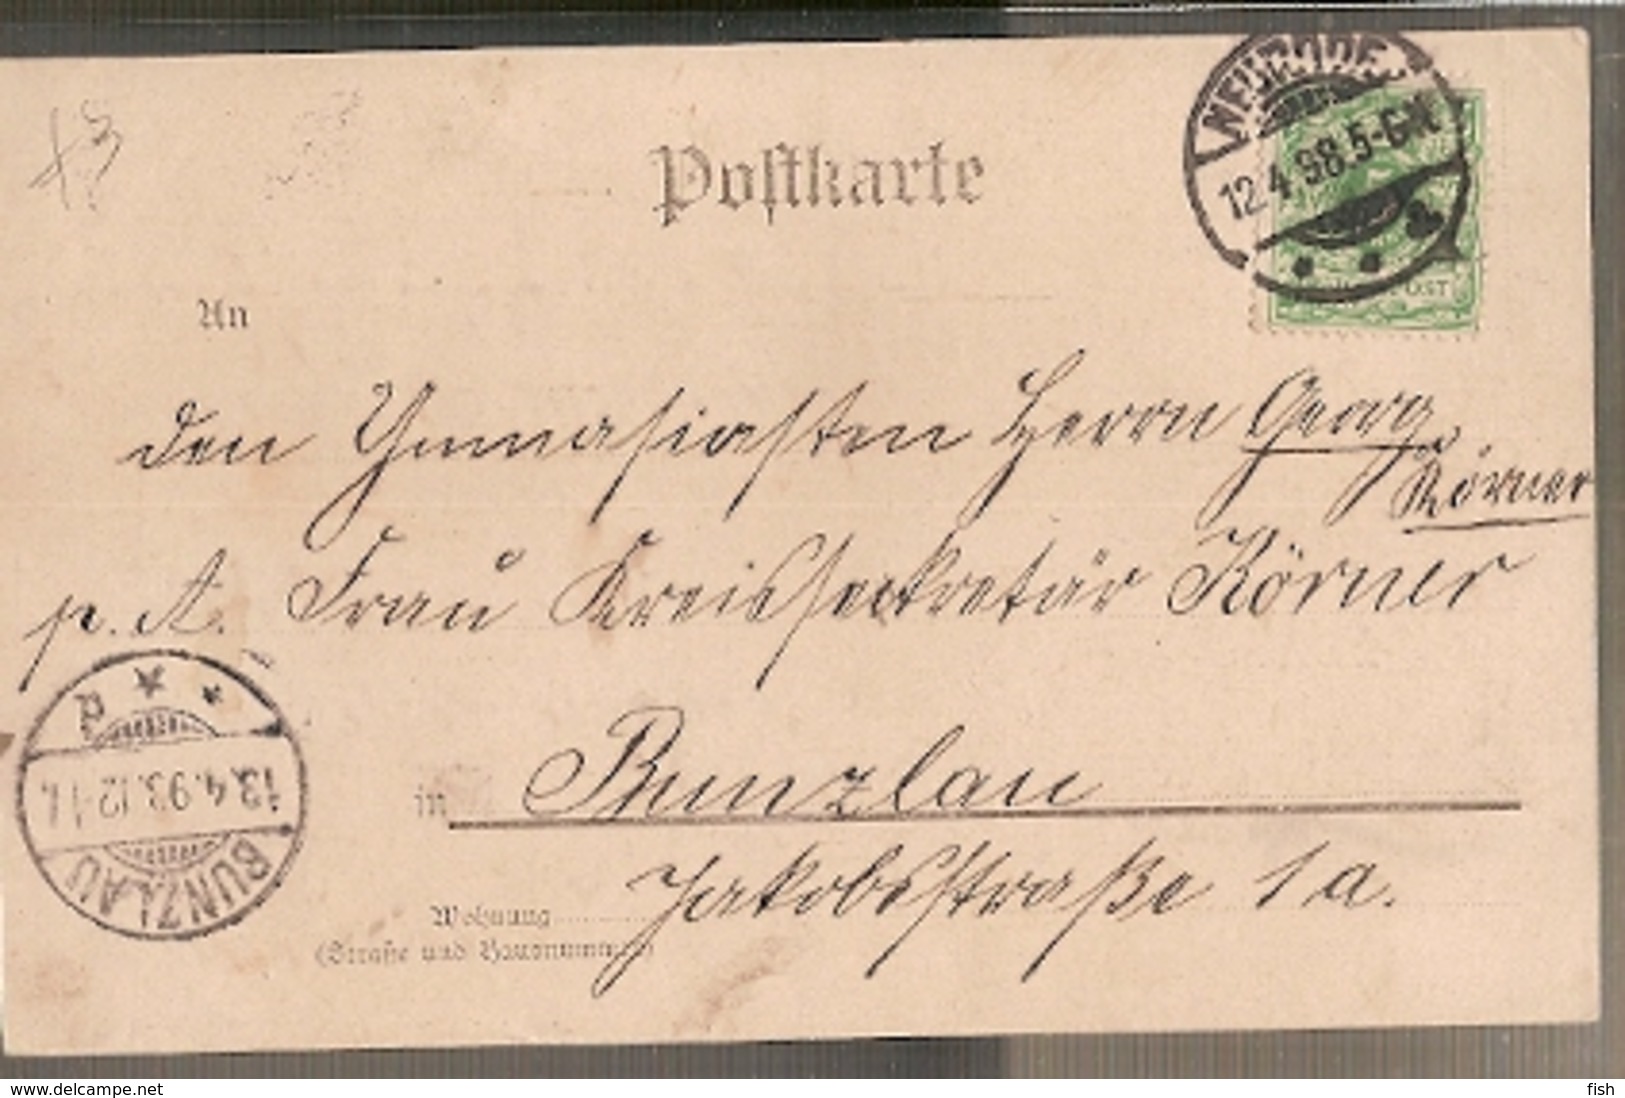 Postkarte
NEURODE
12.4.98.5-6N.
POST
An
den Gymnasiasten Herrn Georg
Körner
p. A. Frau Kreissekretär Körner
in Bunzlau
Jakobsstraße 1a.
Wohnung
(Straße und Hausnummer)
BUNZLAU
13.4.98.12-1
www.delcampe.net
fish